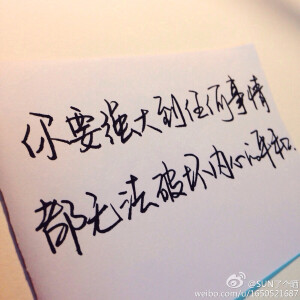 你要强大到任何事情
都无法破坏内心平和.
@SUN了个海
weibo.com/u/1650521687